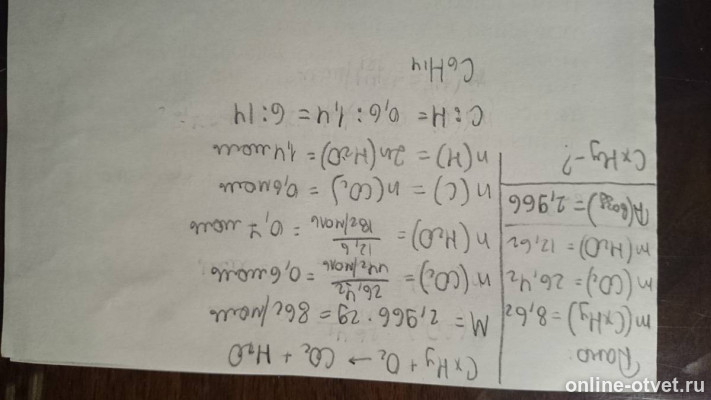 Дано:
m(CxHy) = 8,6г
m(CO2) = 26,4г
m(H2O) = 12,6г
Д(возд) = 2,966
CxHy - ?
CxHy + O2 → CO2 + H2O
M = 2,966 · 29 = 86г/моль
n(CO2) = 26,4г / 44г/моль = 0,6моль
n(H2O) = 12,6 / 18г/моль = 0,7 моль
n(C) = n(CO2) = 0,6моль
n(H) = 2n(H2O) = 1,4моль
C : H = 0,6 : 1,4 = 6 : 14
C6H14
online-otvet.ru